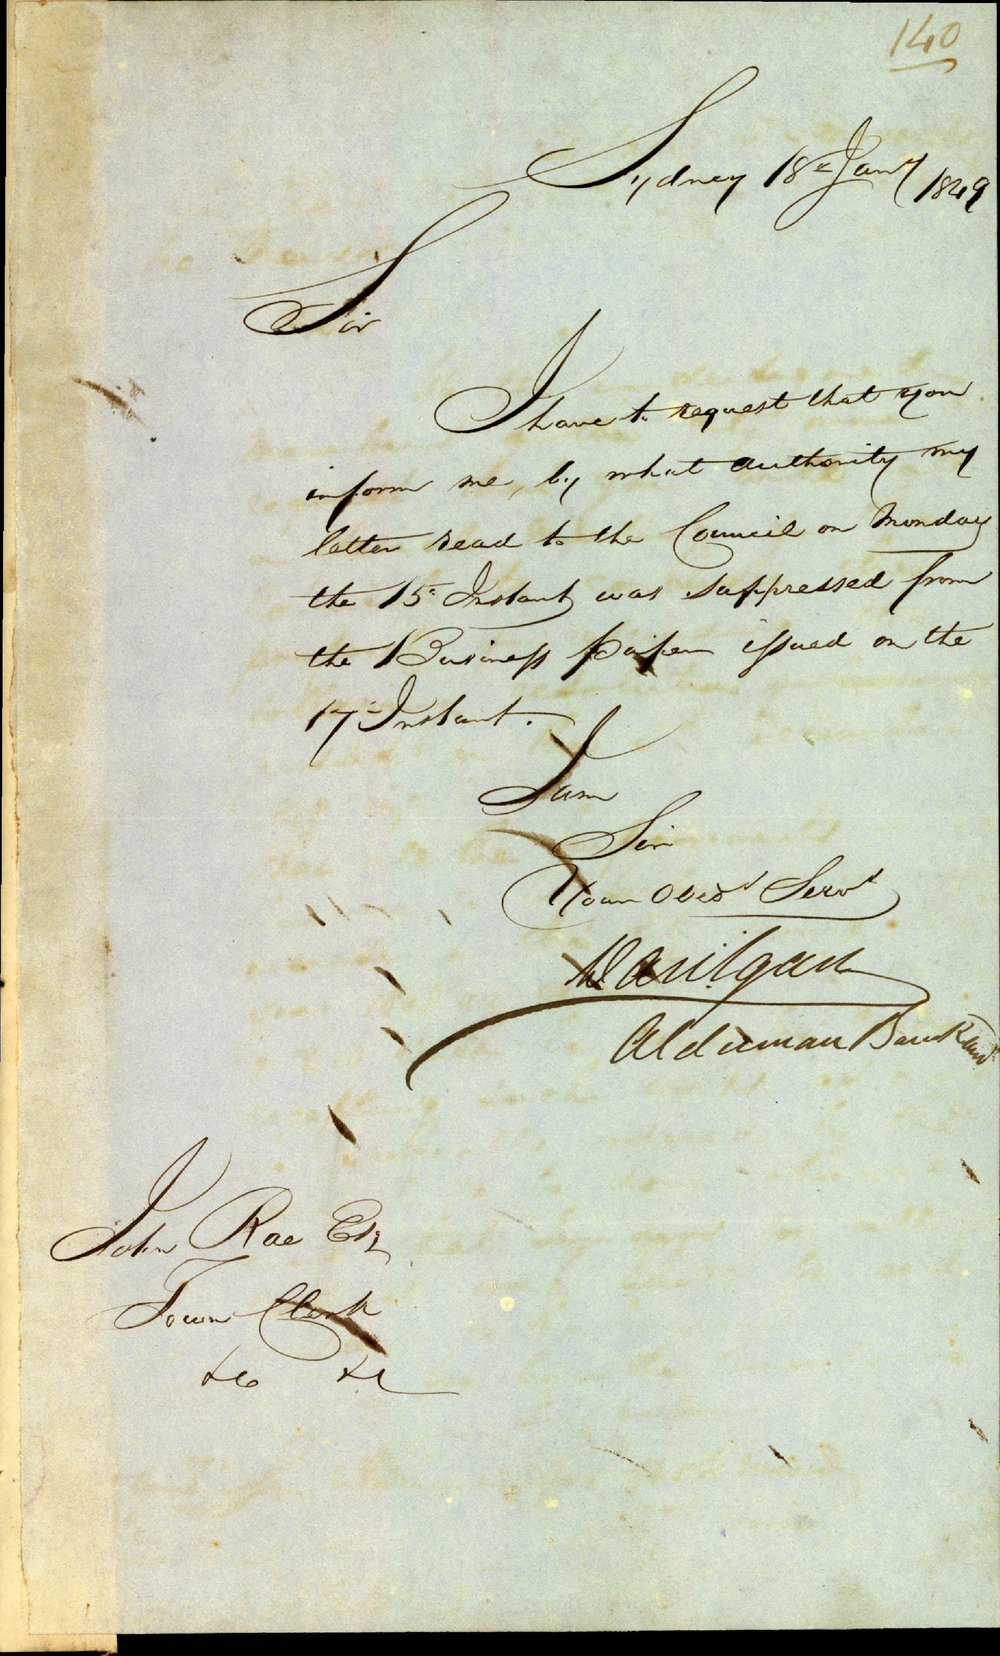 140
Sydney 18th Jany 1849
Sir
I have to request that you
inform me, by what authority my
letter read to the Council on Monday
the 15th Instant was suppressed from
the Business paper issued on the
17th Instant.
I am
Sir
Your Obedt Servt
Alderman
John Rae Esq
Town Clerk
&c &c